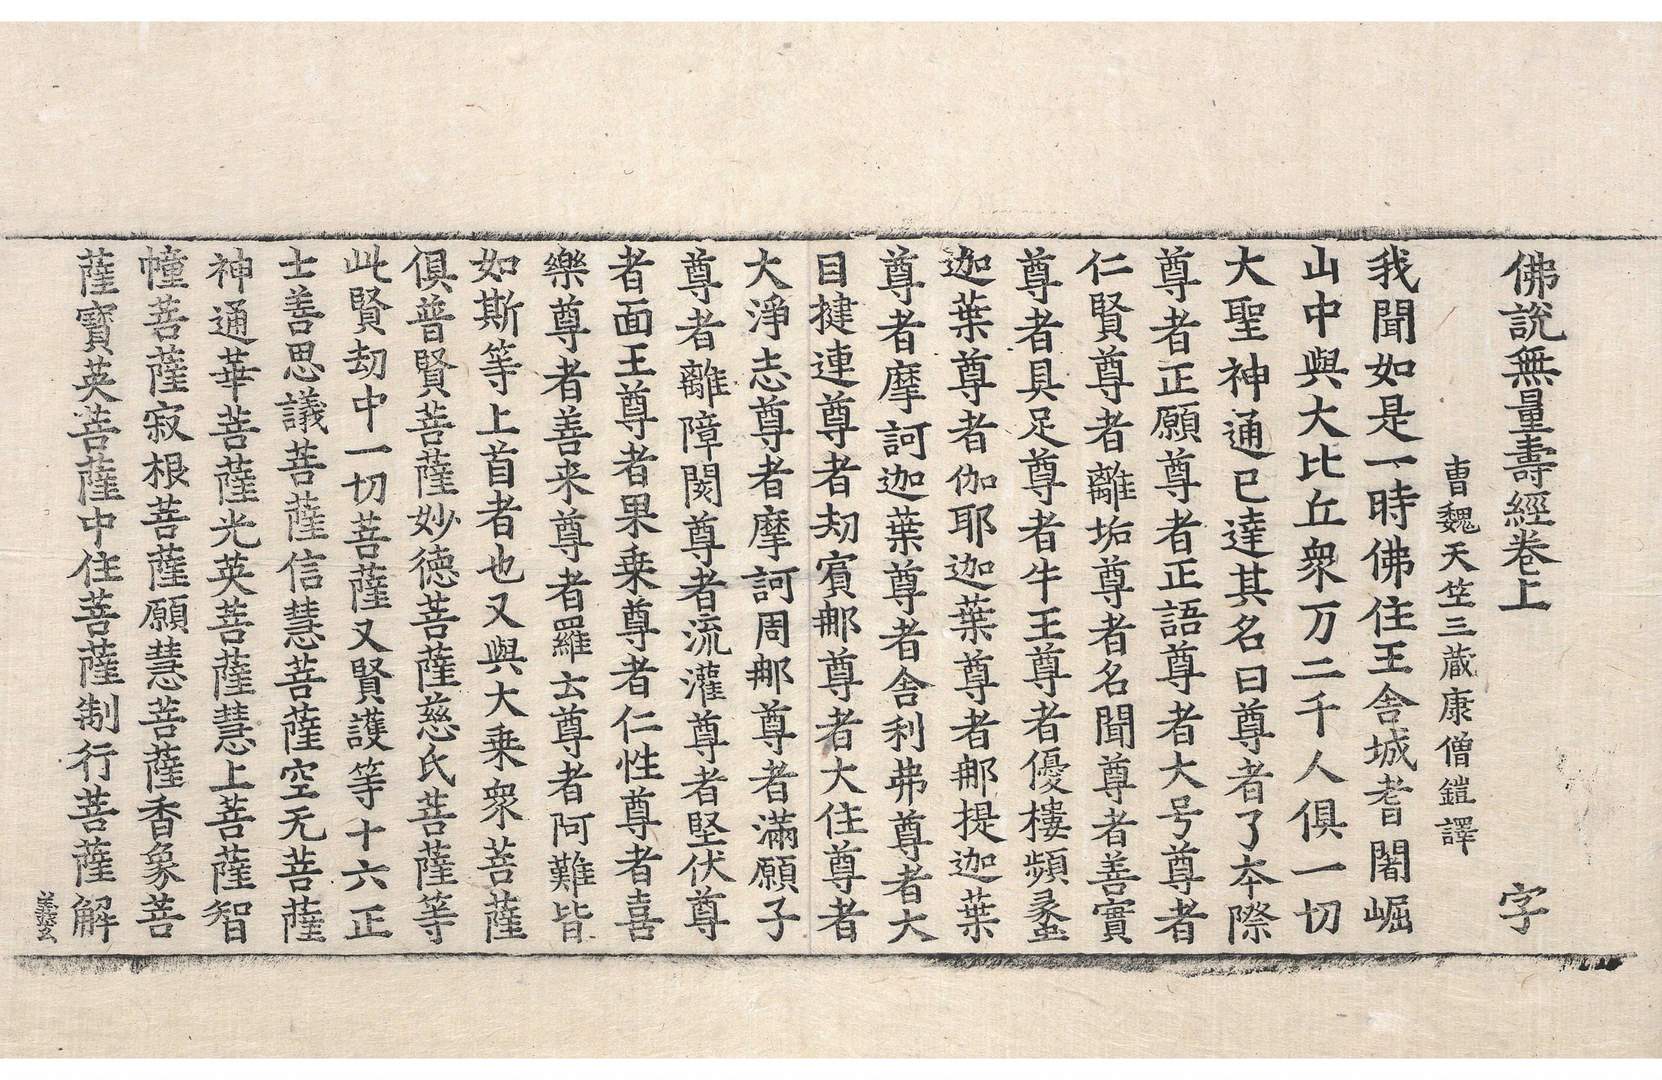 佛說無量壽經卷上 字
曹魏天竺三藏康僧鎧譯
我聞如是一時佛住王舍城耆闍崛
山中與大比丘衆万二千人俱一切
大聖神通已達其名曰尊者了本際
尊者正願尊者正語尊者大号尊者
仁賢尊者離垢尊者名聞尊者善實
尊者具足尊者牛王尊者優樓頻蠡
迦葉尊者伽耶迦葉尊者那提迦葉
尊者摩訶迦葉尊者舍利弗尊者大
目揵連尊者劫賓那尊者大住尊者
大淨志尊者摩訶周那尊者滿願子
尊者離障閡尊者流灌尊者堅伏尊
者面王尊者果乗尊者仁性尊者喜
樂尊者善来尊者羅云尊者阿難皆
如斯等上首者也又與大乗衆菩薩
俱普賢菩薩妙德菩薩慈氏菩薩等
此賢劫中一切菩薩又賢護等十六正
士善思議菩薩信慧菩薩空无菩薩
神通華菩薩光英菩薩慧上菩薩智
幢菩薩寂根菩薩願慧菩薩香象菩
薩寶英菩薩中住菩薩制行菩薩解